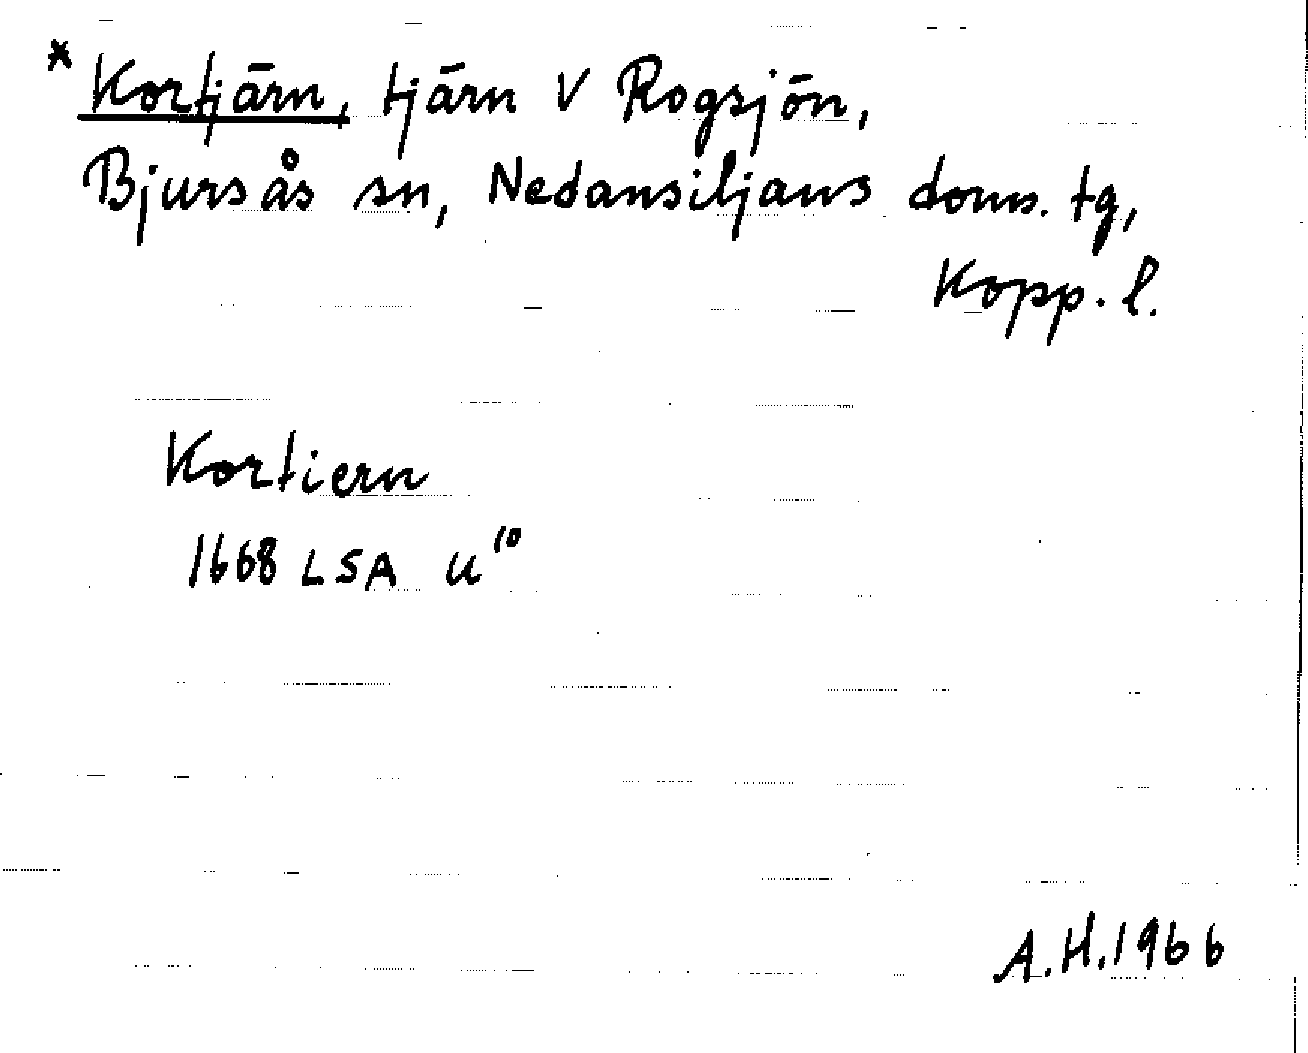 * Kortjärn, tjärn V Rogsjön,
Bjursås sn, Nedansiljans doms. tg,
Kopp. l.
Kortiern
1668 LSA U¹⁰
A.H. 1966